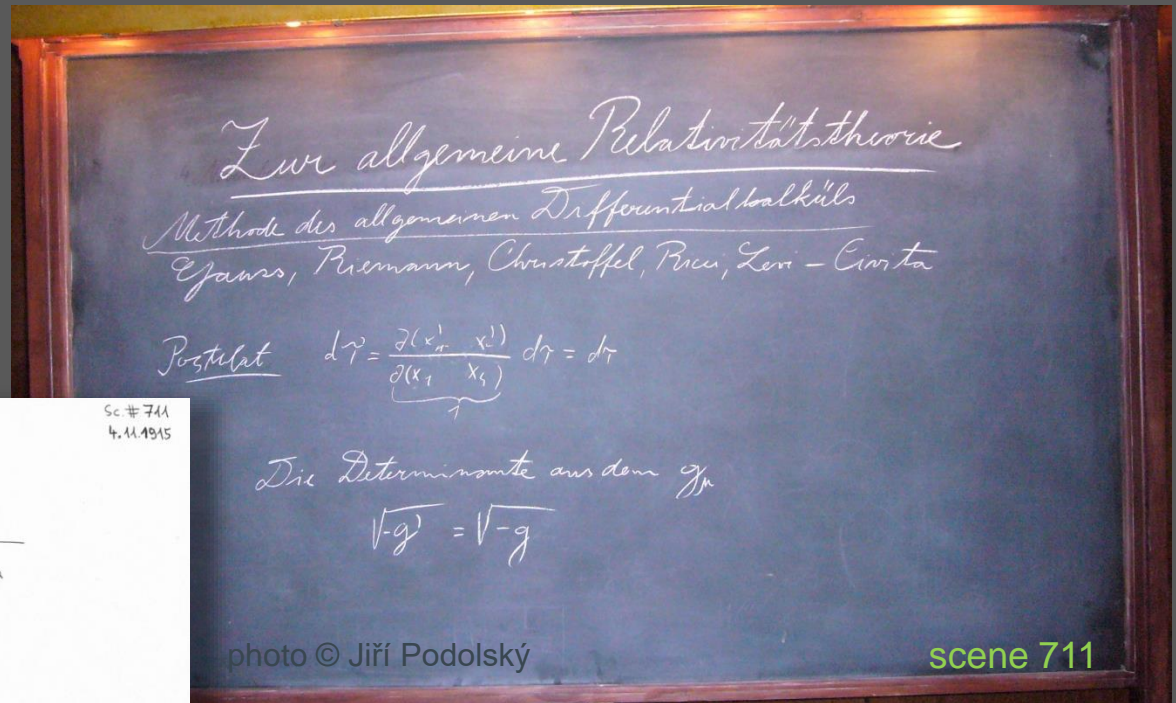 Zur allgemeine Relativitätstheorie
Methode des allgemeinen Differentialkalküls
Gauss, Riemann, Christoffel, Ricci, Levi – Civita
Postulat dτ' = ∂(x'₁ x'₄) / ∂(x₁ x₄) dτ = dτ
1
Die Determinante aus dem gμ
√-g' = √-g
Sc.# 711
4.11.1915
photo © Jiří Podolský
scene 711